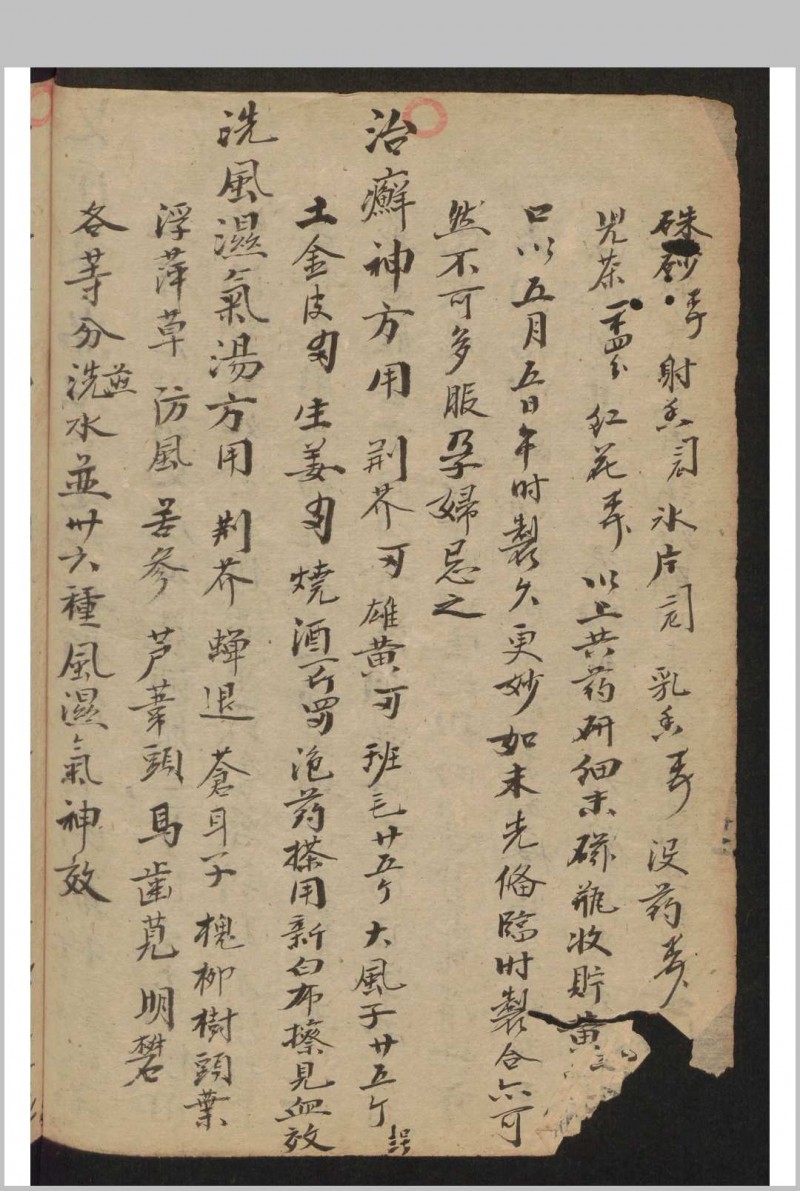 硃砂 射香 冰片 乳香 没药
児茶 红花 以上共药研细末磁瓶收貯黄
口以五月五日午时製久更妙如未先俻臨时製合亦可
然不可多服孕婦忌之
治癬神方用 荆芥 雄黄 班毛廿五个 大風子廿五个
土金皮 生姜 燒酒 泡药搽用新白布擦見血效
洗風濕氣湯方用 荆芥 蟬退 蒼耳子 槐柳樹頭葉
浮萍草 防風 苦參 芦葦頭 馬齒莧 明礬
各等分洗水並卅六種風濕氣神效